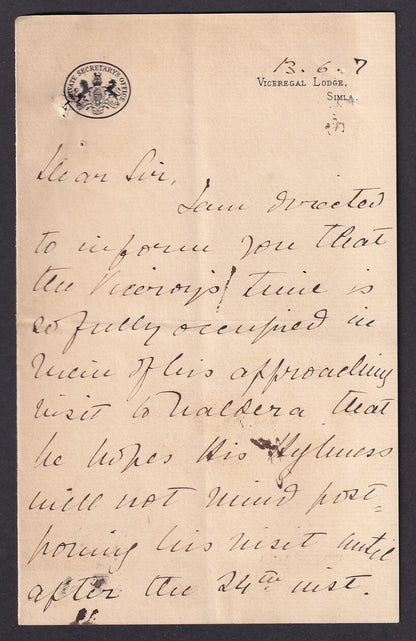 PRIVATE SECRETARY'S OFFICE
13. 6. 7
VICEREGAL LODGE,
SIMLA.
Dear Sir,
I am directed
to inform you that
the Viceroy's time is
so fully occupied in
view of his approaching
visit to Naldera that
he hopes His Highness
will not mind post-
poning his visit until
after the 24th inst.